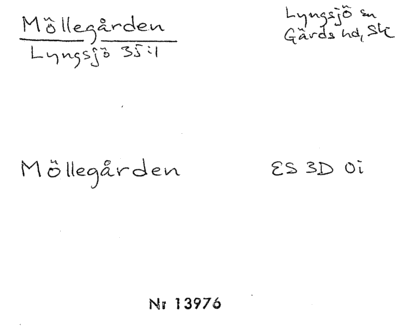 Möllegården
Lyngsjö 35:1
Lyngsjö sn
Gärds hd, Sk
Möllegården
ES 3D 0i
Nr 13976